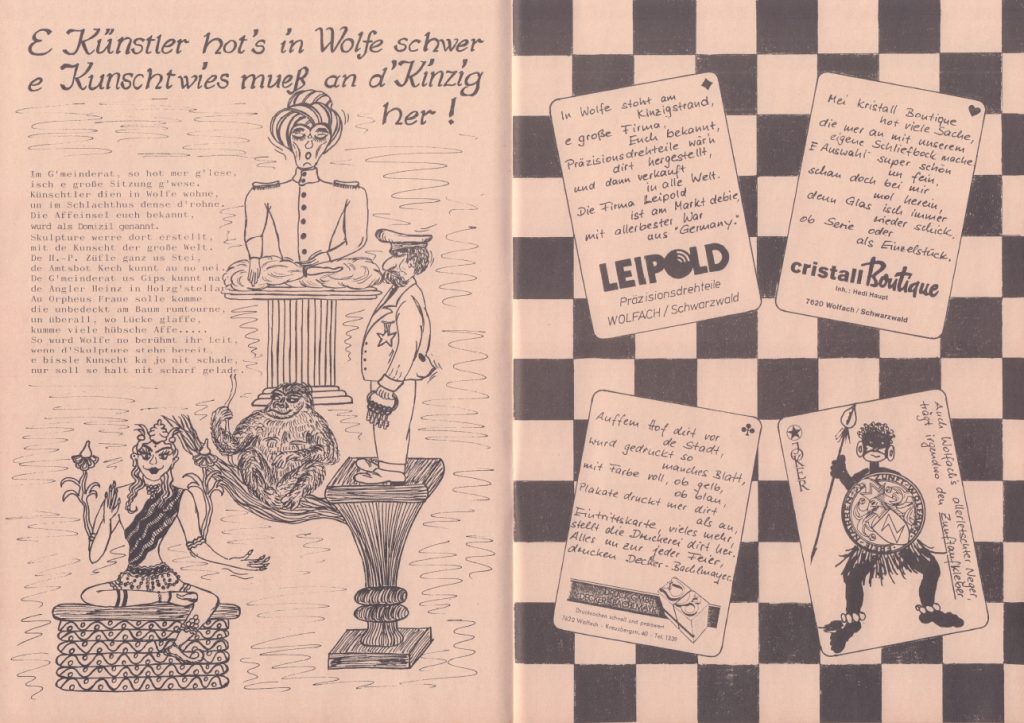 E Künstler hot's in Wolfe schwer
e Kunschtwies mueß an d'Kinzig
her !
Im G'meinderat, so hot mer g'lese,
isch e große Sitzung g'wese.
Künschtler dien in Wolfe wohne,
un im Schlachthus dense d'rohne.
Die Affeinsel euch bekannt,
wurd als Domizil genannt.
Skulpture werre dort erstellt,
mit de Kunscht der große Welt.
De H.-P. Züfle ganz us Stei,
de Amtsbot Kech kunnt au no nei.
De G'meinderat us Gips kunnt na
de Angler Heinz in Holzg'stella
Au Orpheus Fraue solle komme
die unbedeckt am Baum rumtourne,
un überall, wo Lücke glaffe,
kumme viele hübsche Affe.....
So wurd Wolfe no berühmt ihr Leit,
wenn d'Skulpture stehn bereit,
e bissle Kunscht ka jo nit schade,
nur soll se halt nit scharf gelade.
In Wolfe stoht am
Kinzigstrand,
e große Firma.
Euch bekannt,
Präzisionsdrehteile wärn
dirt hergestellt,
und dann verkauft
in alle Welt.
Die Firma Leipold
ist am Markt debie,
mit allerbester War
aus "Germany."
LEIPOLD
Präzisionsdrehteile
WOLFACH / Schwarzwald
Mei Kristall Boutique
hot viele Sache,
die mer an mit unserem
eigene Schliefbock mache
E Auswahl super schön
un fein
schau doch bei mir
mol herein,
denn Glas isch immer
wieder schick,
ob Serie oder
als Einzelstück,
cristall Boutique
Inh.: Hedi Haupt
7620 Wolfach / Schwarzwald
Auffem Hof dirt vor
de Stadt,
wurd gedruckt so
manches Blatt,
mit Farbe voll, ob gelb,
ob blau,
Plakate druckt mer dirt
als au,
Eintrittskarte, vieles mehr,
stellt die Druckerei dirt her.
Alles un zur jeder Feier,
drucken Decker-Bachlmayer.
Drucksachen schnell und preiswert
7620 Wolfach · Kreuzbergstr. 40 · Tel. 1339
Auch Wolfach's allerletschter Neger,
trägt irgendwo den Zunftaufkleber